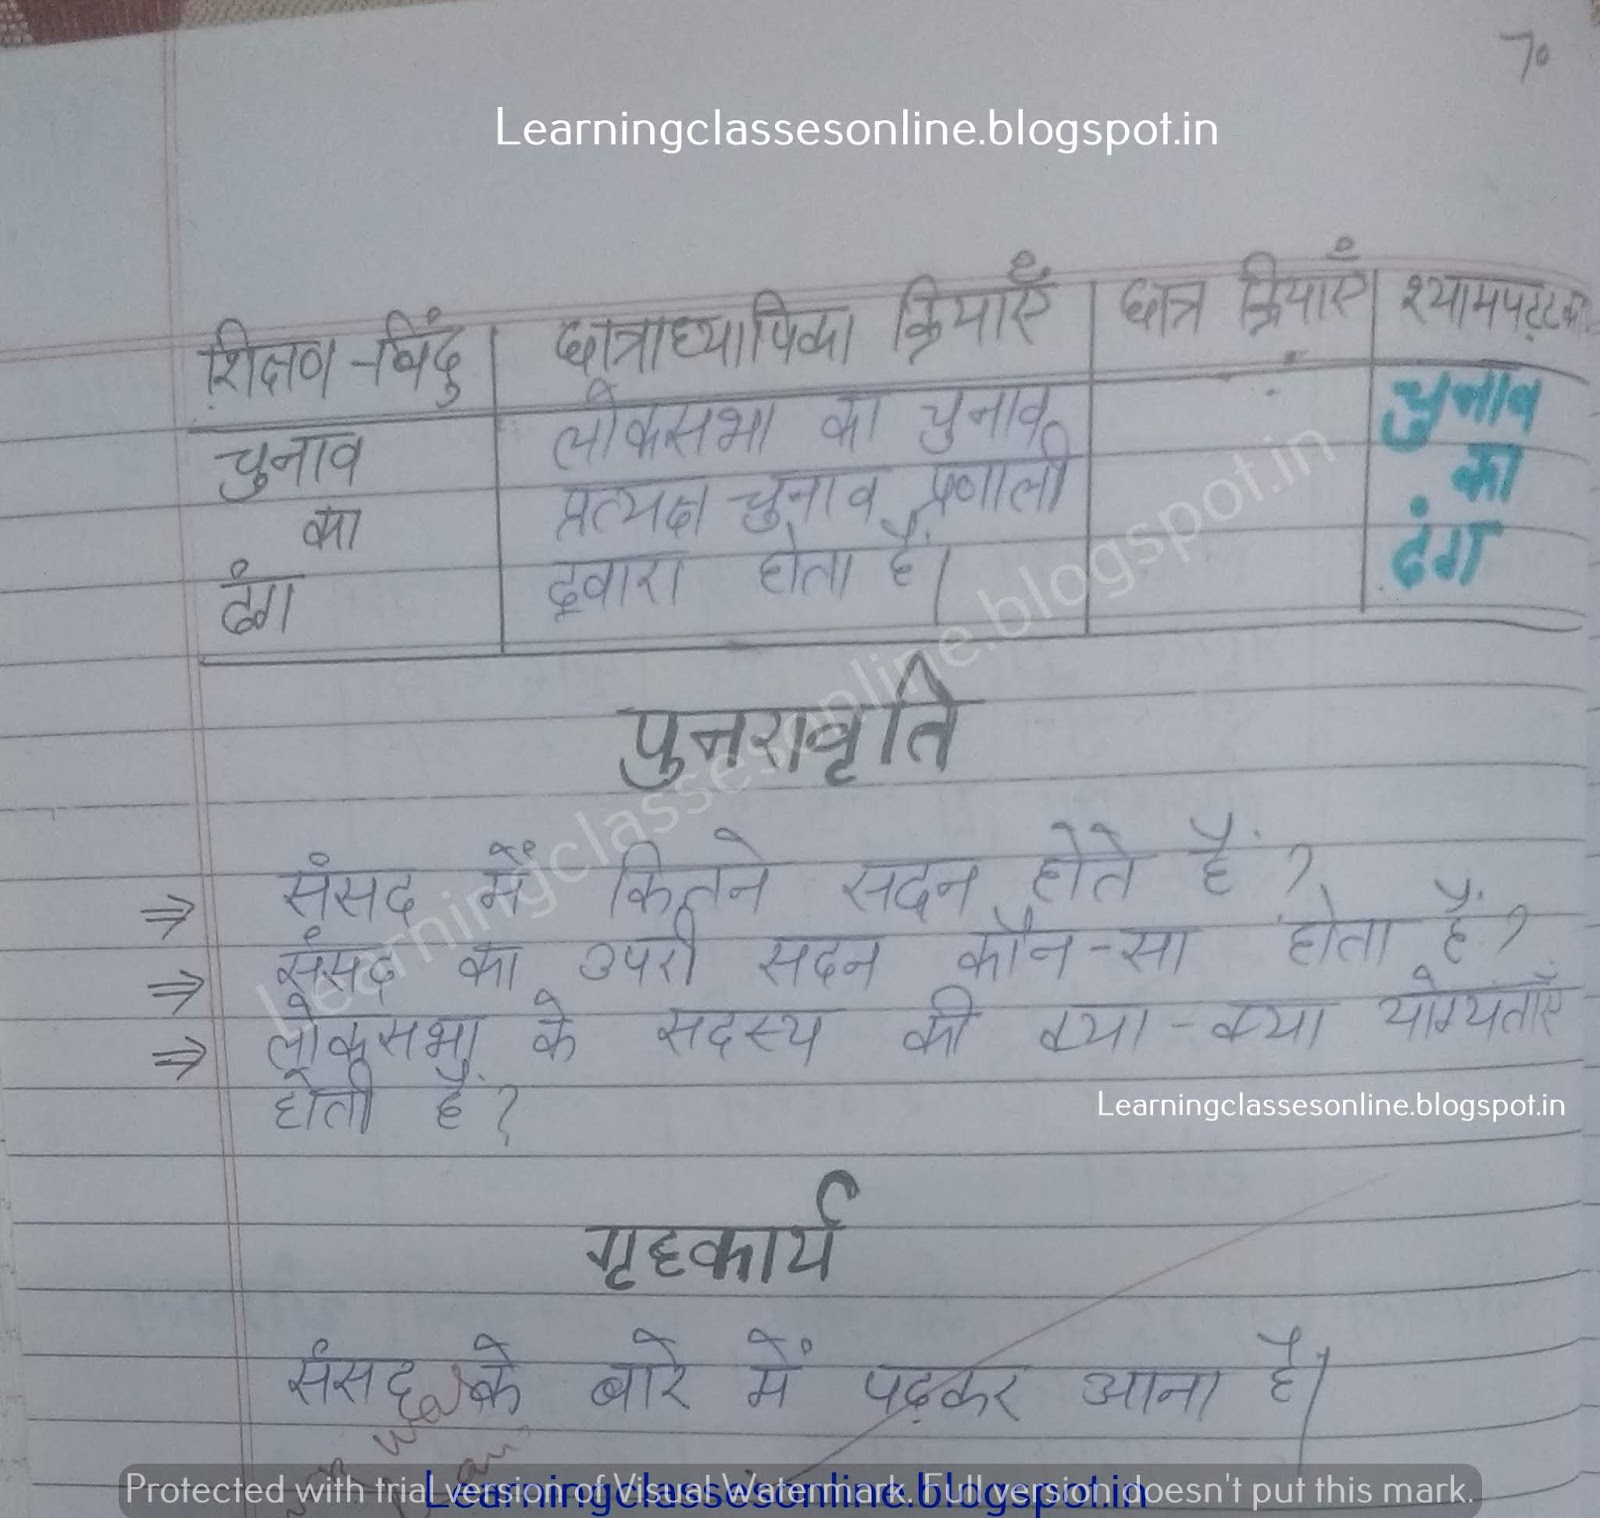 70
Learningclassesonline.blogspot.in
शिक्षण-बिंदु छात्राध्यापिका क्रियाएँ छात्र क्रियाएँ श्यामपट्ट
चुनाव लोकसभा का चुनाव चुनाव
का प्रत्यक्ष चुनाव प्रणाली का
ढंग द्वारा होता है। ढंग
Learningclassesonline.blogspot.in
पुनरावृति
⇒ संसद में कितने सदन होते हैं?
⇒ संसद का उपरी सदन कौन-सा होता है?
⇒ लोकसभा के सदस्य की क्या-क्या योग्यताएँ
होती हैं?
Learningclassesonline.blogspot.in
गृहकार्य
संसद के बारे में पढ़कर आना है।
Protected with trial version of Visual Watermark. Full version doesn't put this mark.
Learningclassesonline.blogspot.in